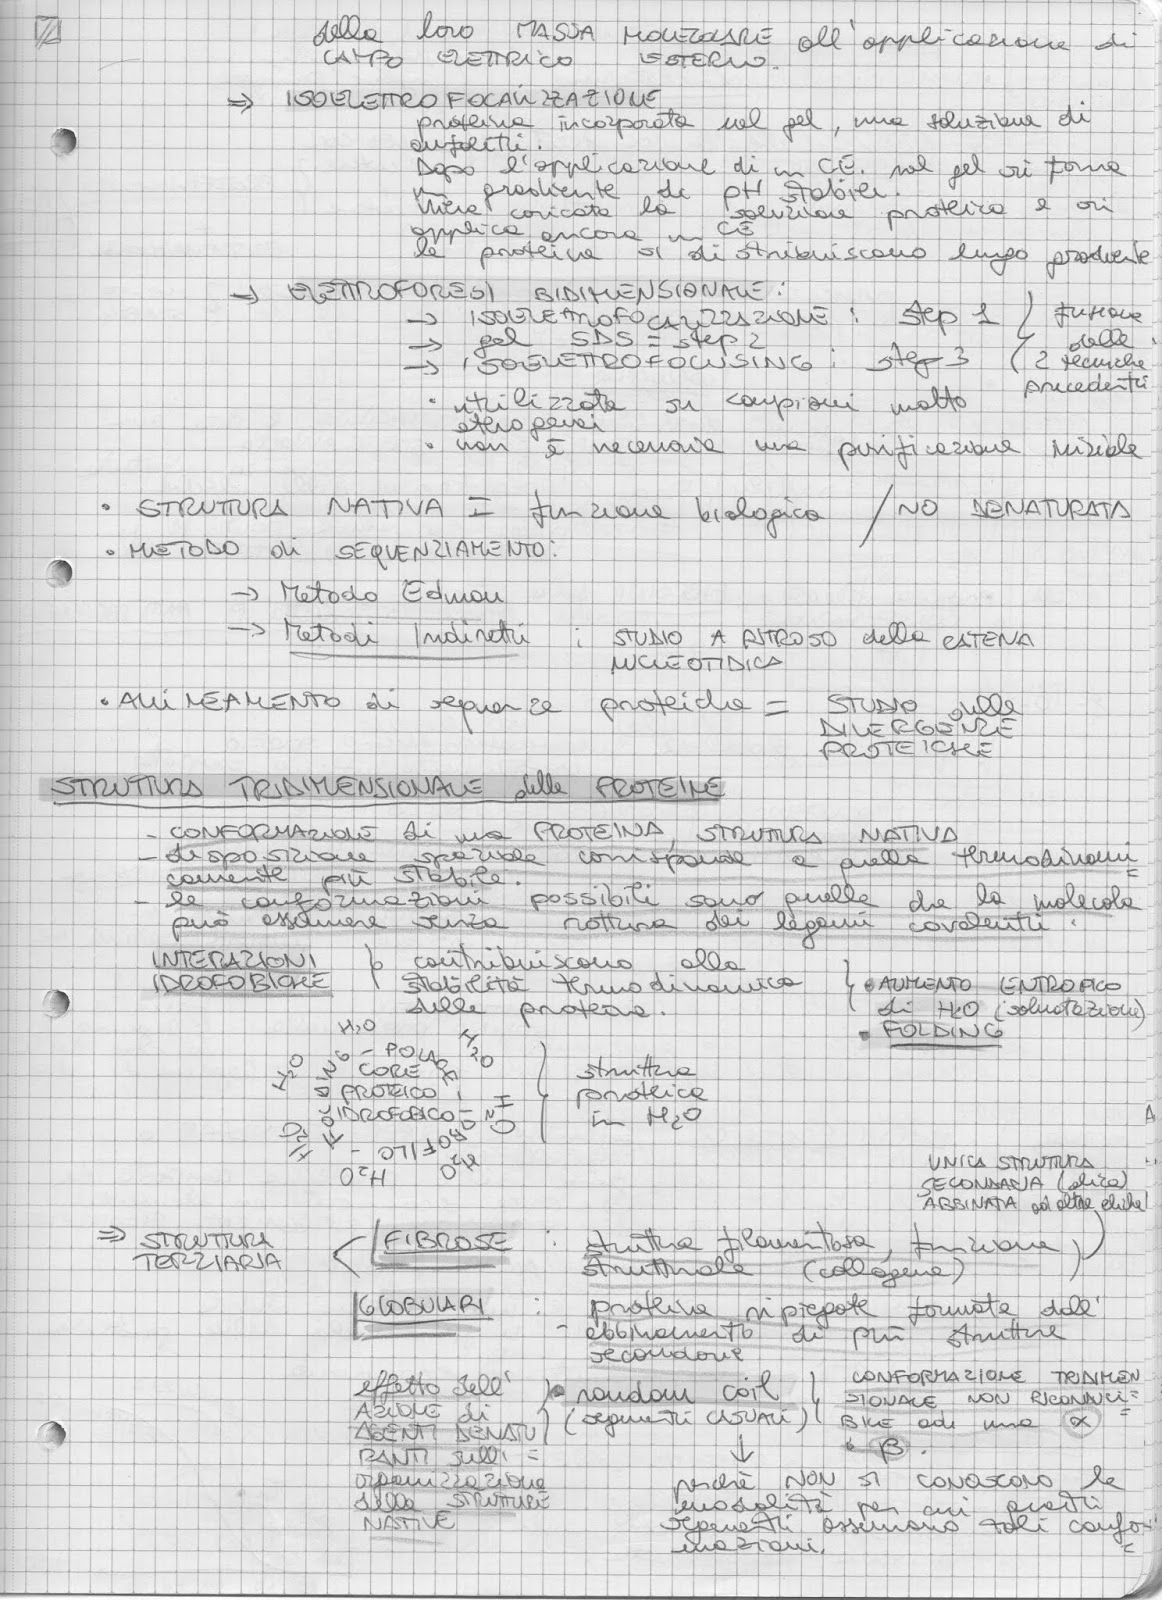 della loro MASSA MOLECOLARE all'applicazione di
CAMPO ELETTRICO ESTERNO.
=> ISOELETTROFOCALIZZAZIONE
proteina incorporata nel gel, una soluzione di
anfoliti.
Dopo l'applicazione di un C.E. nel gel si forma
un gradiente di pH stabile.
Viene caricata la soluzione proteica e si
applica ancora un CE
le proteine si distribuiscono lungo gradiente
-> ELETTROFORESI BIDIMENSIONALE:
-> ISOELETTROFOCALIZZAZIONE: step 1
-> gel SDS = step 2
-> ISOELETTROFOCUSING: step 3
fusione
delle
2 tecniche
precedenti
• utilizzata su campioni molto
eterogenei
• non è necessaria una purificazione iniziale
• STRUTTURA NATIVA = funzione biologica / NO DENATURATA
• METODO di SEQUENZIAMENTO:
-> Metodo Edman
-> Metodi Indiretti : STUDIO A RITROSO della CATENA
NUCLEOTIDICA
• ALLINEAMENTO di sequenze proteiche = STUDIO sulle
DIVERGENZE
PROTEICHE
STRUTTURA TRIDIMENSIONALE delle PROTEINE
- CONFORMAZIONE di una PROTEINA, STRUTTURA NATIVA
- disposizione spaziale corrisponde a quella termodinami=
camente più stabile.
- le conformazioni possibili sono quelle che la molecola
può assumere senza rottura dei legami covalenti.
INTERAZIONI
IDROFOBICHE
contribuiscono alla
stabilità termodinamica
delle proteine.
• AUMENTO ENTROFICO
di H2O (solvatazione)
• FOLDING
H2O
H2O
H2O
- POLAR
CORE
PROTEICO
IDROFOBICO
H2O
H2O
H2O
struttura
proteica
in H2O
A
UNICA STRUTTURA
SECONDARIA (elica)
ABBINATA ad altre eliche
=> STRUTTURA
TERZIARIA
FIBROSE : struttura filamentosa, funzione
strutturale (collagene)
GLOBULARI : proteine ripiegate formate dall'
abbinamento di più strutture
secondarie
effetto dell'
AZIONE di
AGENTI DENATU
RANTI sull'=
organizzazione
delle STRUTTURE
NATIVE
• random coil
(segmenti CASUALI)
CONFORMAZIONE TRIDIMEN
SIONALE NON RICONDUCI=
BILE ad una α
o β.
↓
perché NON SI CONOSCONO le
modalità per cui questi
segmenti assumono tali confor=
mazioni.